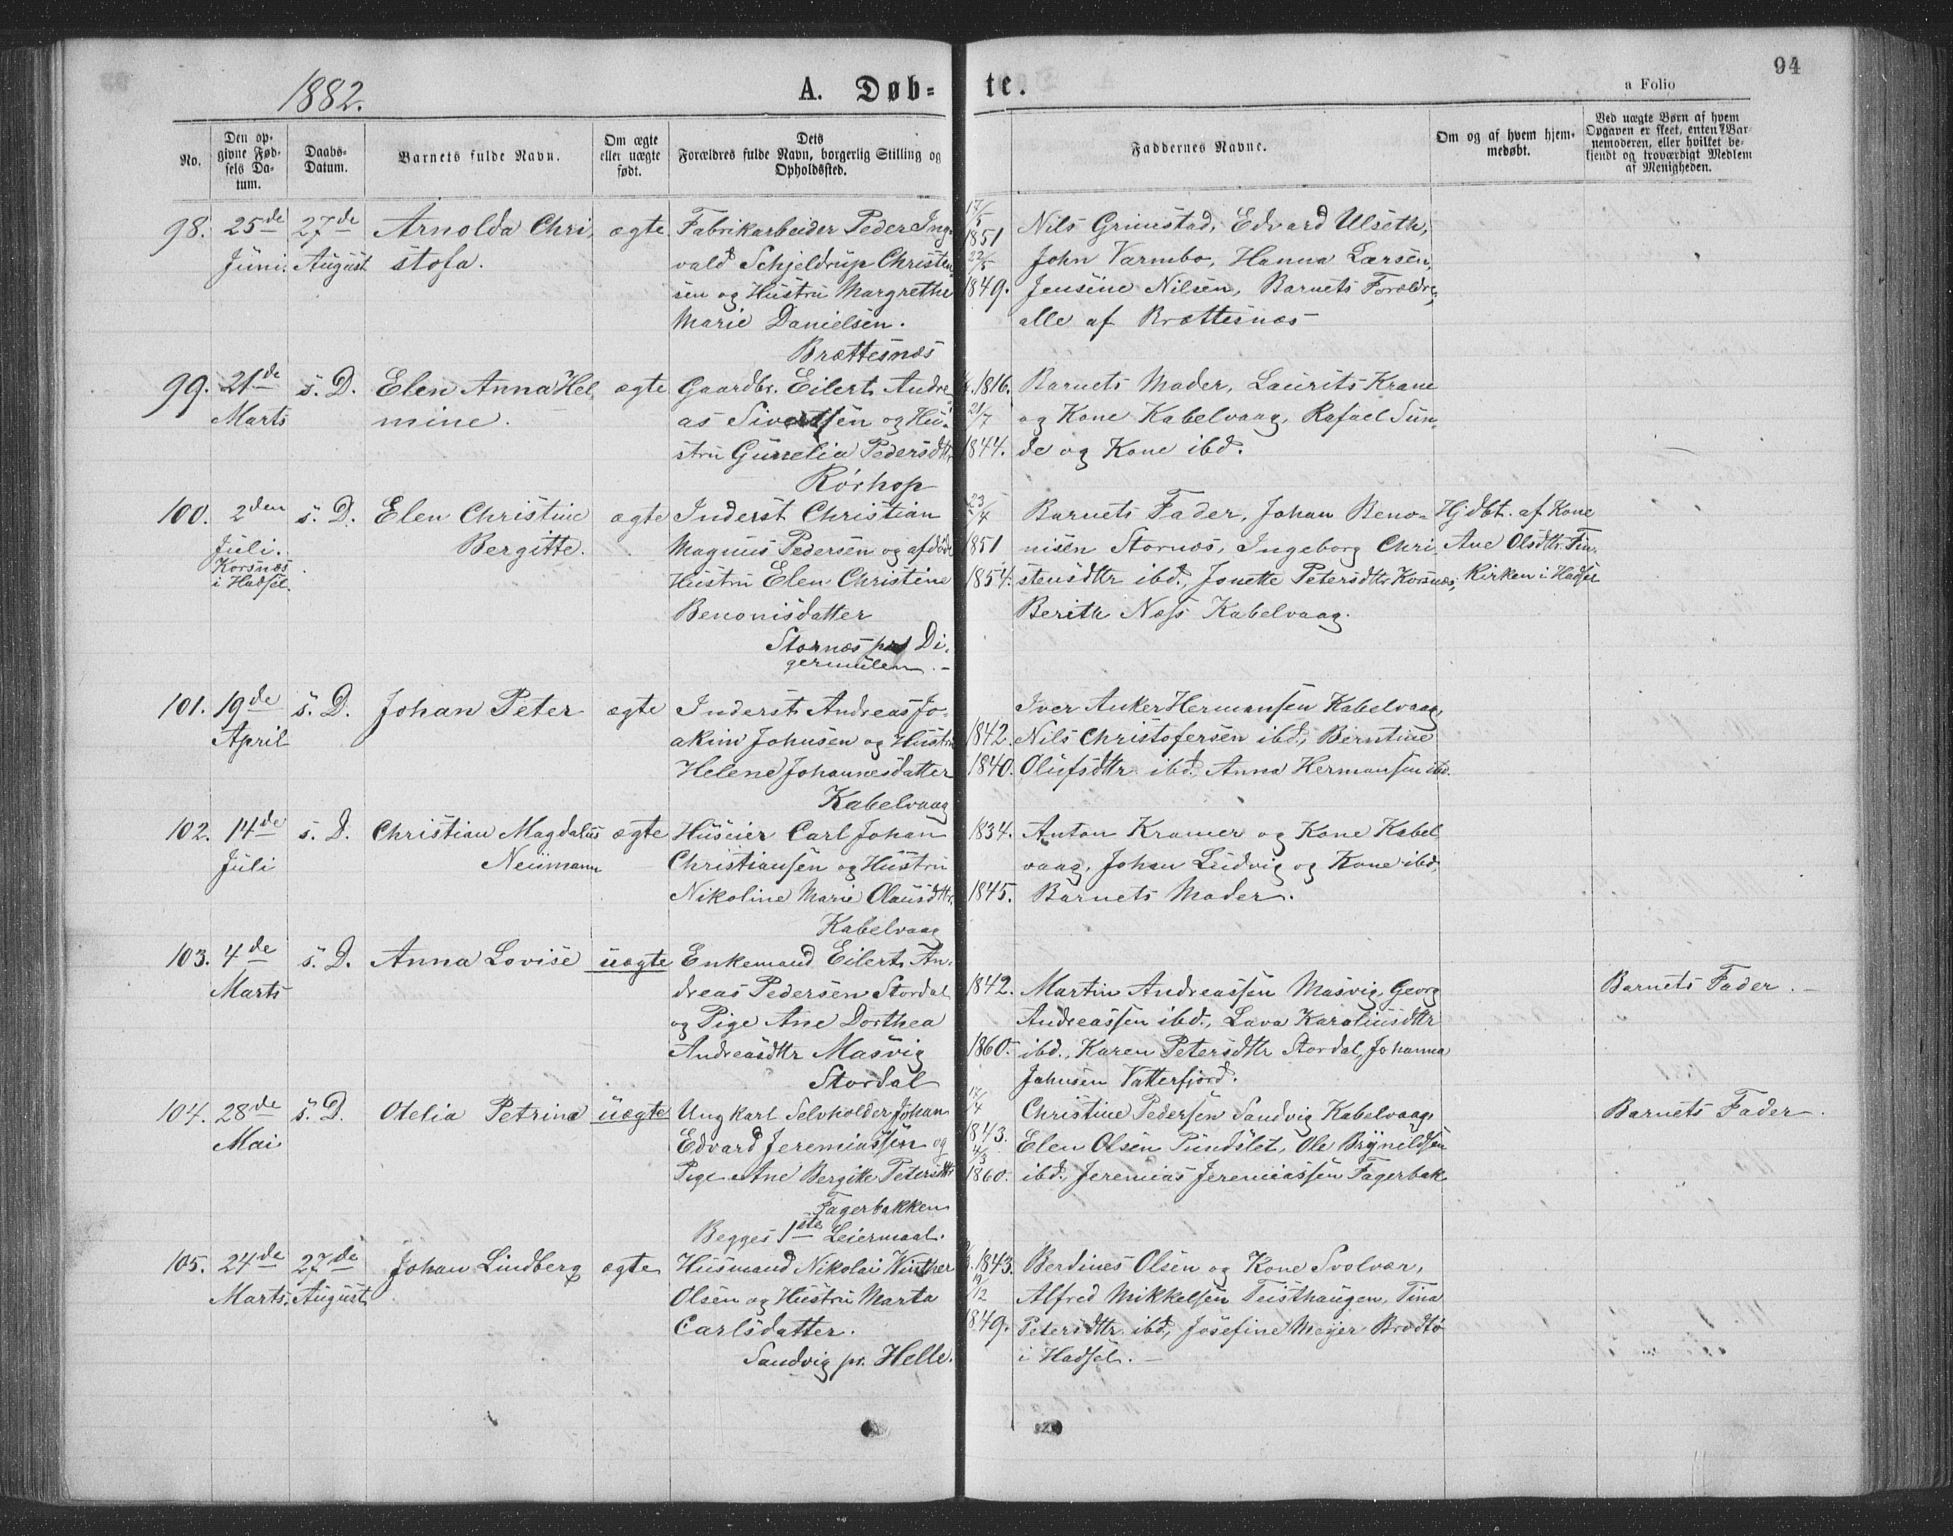 1882.
A. Døb-
te.
a Folio
94
No.
Den op-
givne Fød-
sels Da-
tum.
Daabs-
Datum.
Barnets fulde Navn.
Om ægte
eller uægte
født.
Dets
Forældres fulde Navn, borgerlig Stilling og
Opholdssted.
Faddernes Navne.
Om og af hvem hjem-
medøbt.
Ved uægte Børn af hvem
Opgaven er skeet, enten Bar-
nemoderen, eller hvilket be-
kjendt og troværdigt Medlem
af Menigheden.
98. 25de 27de Arnolda Chri- ægte Fabrikarbeider Peder Ing-
Juni. August stofa. vald Schjeldrup Christen-
sen og Hustru Margrethe
Marie Danielsen.
Brættesnæs
17/5
1851
22/5
1849.
Nils Grimstad, Edvard Ulseth,
John Varmbo, Hanna Larsen,
Jensine Nilsen, Barnets Forældre,
alle af Brættesnæs
99. 21de s. D. Elen Anna Hel- ægte Gaardbr. Eilert Andre-
Marts mine. as Sivertsen og Hu-
stru Gunelia Pedersdtr.
Rörhop
1816.
21/7
1844.
Barnets Moder, Laurits Krane
og Kone Kabelvaag, Rafael Sun-
de og Kone ibd.
100. 2den s. D. Elen Christine ægte Inderst Christian
Juli. Bergitte. Magnus Pedersen og afdøde
Korsnæs
i Hadsel.
Hustru Elen Christine
Benonisdatter
Stornæs pr Di-
germulen.
23/4
1851
1854.
Barnets Fader, Johan Beno-
nisen Stornæs, Ingeborg Chri-
stensdtr ibd., Jonette Petersdtr Korsnæs,
Berith Næss Kabelvaag.
Hjdbt. af Kone
Ane Olsdtr.
Kirken i Hadsel
101. 19de s. D. Johan Peter ægte Inderst Andreas Jo-
April akim Johnsen og Hustru
Helene Johannesdatter
Kabelvaag
1842.
1840.
Iver Anker Hermansen Kabelvaag,
Nils Christofersen ibd., Berntine
Olufsdtr ibd. Anna Hermansen ibd.
102. 14de s. D. Christian Magdalus ægte Huseier Carl Johan
Juli Neumann Christiansen og Hustru
Nikoline Marie Olausdtr.
Kabelvaag
1834.
1845.
Anton Kramer og Kone Kabel
vaag, Johan Ludvig og Kone ibd,
Barnets Moder.
103. 4de s. D. Anna Lovise uægte Enkemand Eilert An-
Marts dreas Pedersen Stordal
og Pige Ane Dorthea
Andreasdtr Masvig
Stordal
1842.
1860.
Martin Andreassen Masvig, Georg
Andreassen ibd., Lava Karoliusdtr
ibd., Karen Petersdtr Stordal, Johanna
Johnsen Vatterfjord.
Barnets Fader.
104. 28de s. D. Otelia Petrina uægte Ungkarl Selvholder Johan
Mai Edvard Jeremiassen og
Pige Ane Bergitte Petersdtr
Fagerbakken
Begges 1ste Leiermaal.
17/4
1843.
4/3
1860.
Christine Pedersen Sandvig Kabelvaag,
Elen Olsen Pundslet, Ole Brynildsen
ibd., Jeremias Jeremiassen Fagerbak
Barnets Fader.
105. 24de 27de Johan Lindberg ægte Husmand Nikolai Winther
Marts. August Olsen og Hustru Marta
Carlsdatter.
Sandvig pr. Helle.
1843.
19/12
1849.
Berdines Olsen og Kone Svolvær,
Alfred Mikkelsen Teisthaugen, Tina
Petersdtr ibd, Josefine Meyer Brodtø
i Hadsel.